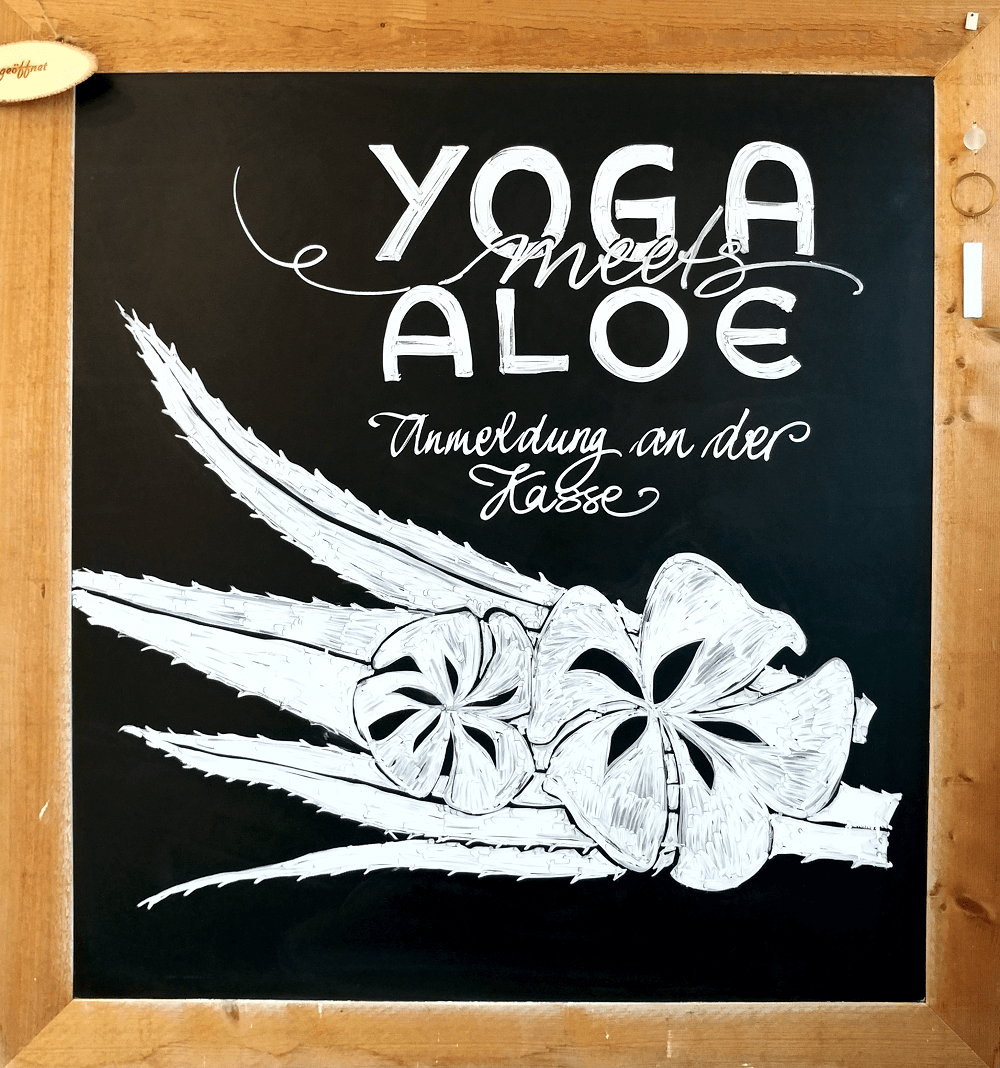 geöffnet
YOGA
meets
ALOE
Anmeldung an der
Kasse